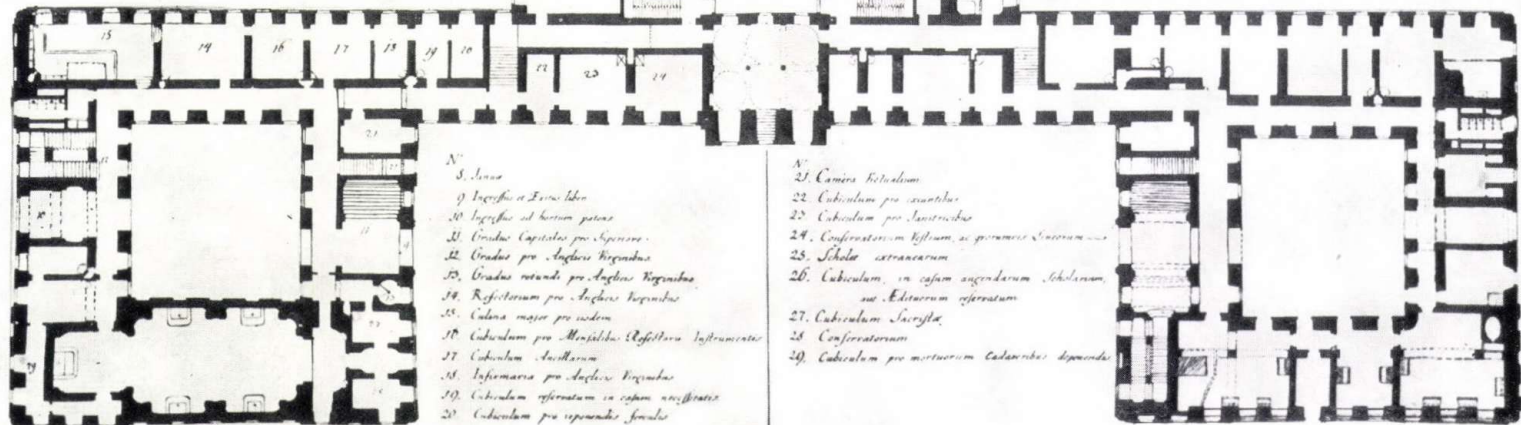 15
14
16
17
18
19
20
22
23
24
21
N.°
8. Janua
9. Ingressus et Exitus liber
10. Ingressus ad hortum patens
11. Gradus Capitales pro Superiore
12. Gradus pro Anglicis Virginibus
13. Gradus rotundi pro Anglicis Virginibus
14. Refectorium pro Anglicis Virginibus
15. Culina major pro iisdem
16. Cubiculum pro Mensalibus Refectorii Instrumentis
17. Cubiculum Ancillarum
18. Infirmaria pro Anglicis Virginibus
19. Cubiculum reservatum in casum necessitatis
20. Cubiculum pro reponendis ferculis
N.°
21. Camera Victualium
22. Cubiculum pro exeuntibus
23. Cubiculum pro Janitricibus
24. Conservatorium Vestium, ac
25. Scholæ extranearum
26. Cubiculum, in casum augendarum Scholarum,
aut Ædituorum reservatum
27. Cubiculum Sacristæ
28 Conservatorium
29. Cubiculum pro mortuorum Cadaveribus deponendis